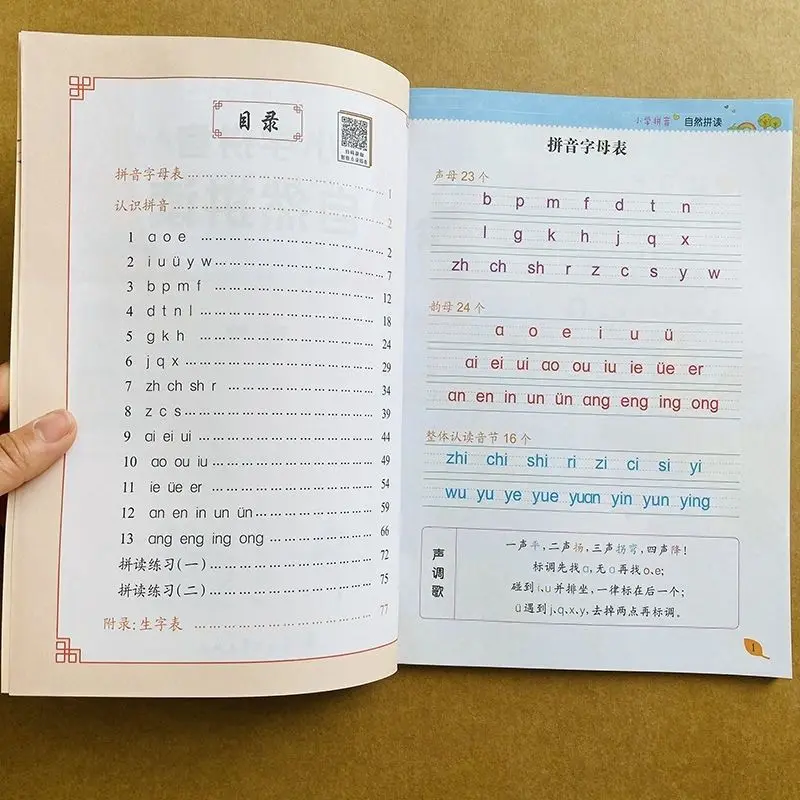 目录
拼音字母表 1
认识拼音 2
1 ɑ o e 2
2 i u ü y w 7
3 b p m f 12
4 d t n l 18
5 g k h 24
6 j q x 29
7 zh ch sh r 34
8 z c s 39
9 ɑi ei ui 44
10 ɑo ou iu 49
11 ie üe er 54
12 ɑn en in un ün 59
13 ɑng eng ing ong 66
拼读练习(一) 72
拼读练习(二) 75
附录:生字表 77
小学拼音 自然拼读
拼音字母表
声母 23 个
b p m f d t n
l g k h j q x
zh ch sh r z c s y w
韵母 24 个
ɑ o e i u ü
ɑi ei ui ɑo ou iu ie üe er
ɑn en in un ün ɑng eng ing ong
整体认读音节 16 个
zhi chi shi ri zi ci si yi
wu yu ye yue yuɑn yin yun ying
声调歌
一声平,二声扬,三声拐弯,四声降!
标调先找ɑ,无ɑ再找o、e;
碰到i、u并排坐,一律标在后一个;
ü遇到j、q、x、y,去掉两点再标调。
1